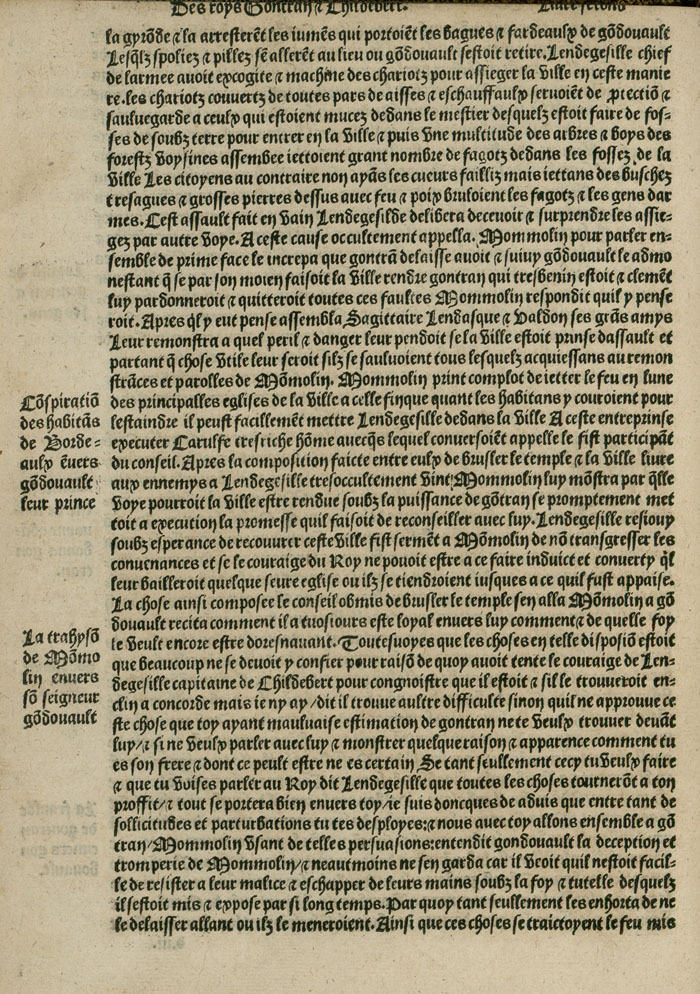 Des roys Gontran & Childebert.
la gyrōde & la arresterēt les iumēs qui portoiēt les bagues & fardeaulx de gōdouault
Lesq̄lz spoliez & pillez sen allerēt au lieu ou gōdouault sestoit retire. Lendegesille chief
de larmee auoit excogite & machine des chariotz pour assieger la Ville en ceste manie
re. les chariotz couuertz de toutes pars de aisses & eschauffaulx seruoiēt de ꝓtectiō &
sauluegarde a ceulx qui estoient mucez dedans le mestier desquelz estoit faire de fos-
ses de soubz terre pour entrer en la Ville & puis Vne multitude des arbres & boys des
forestz Voysines assemblee iettoient grant nombre de fagotz dedans les fossez de la
Ville Les citoyens au contraire non ayās les cueurs failliz mais iettans des buschez
tresagues & grosses pierres dessus auec feu & poix bruloient les fagotz & les gens dar
mes. Cest assault fait en Vain Lendegesilde delibera deceuoir & surprendre les assie-
gez par autre Voye. A ceste cause occultement appella. Mommolin pour parler en-
semble de prime face le increpa que gontrā delaisse auoit & suiuy gōdouault le admo
nestant q̄ se par son moien faisoit la Ville rendre gontran qui tresbenin estoit & clemēt
luy pardonneroit & quitteroit toutes ces faultes Mommolin respondit quil y pense
roit. Apres q̄l y eut pense assembla Sagittaire Lendasque & Valdon ses grās amys
Leur remonstra a quel peril & danger leur pendoit se la Ville estoit prinse dassault et
partant q̄ chose Vtile leur seroit silz se sauluoient tous lesquelz acquiessans au remon
strāces et parolles de Mōmolin. Mommolin print complot de ietter le feu en lune
des principalles eglises de la Ville a celle fin que quant les habitans y couroient pour
lestaindre il peust facillemēt mettre Lendegesille dedans la Ville A ceste entreprinse
executer Carulfe tresriche hōme auecq̄s lequel conuersoiēt appelle le fist participāt
du conseil. Apres la composition faicte entre eulx de brusler le temple & la Ville liure
aux ennemys a Lendegesille tresoccultement Vint Mommolin luy mōstra par q̄lle
Voye pourroit la Ville estre rendue soubz la puissance de gōtran se promptement met
toit a execution la promesse quil faisoit de reconseiller auec luy. Lendegesille resiouy
soubz esperance de recouurer ceste Ville fist sermēt a Mōmolin de nō transgresser les
conuenances et se le couraige du Roy ne pouoit estre a ce faire induict et conuerty q̄l
leur bailleroit quelque seure eglise ou ilz se tiendroient iusques a ce quil fust appaise.
La chose ainsi composee le conseil obmis de brusler le temple sen alla Mōmolin a gō
douault recita comment il a tousiours este loyal enuers luy comment & de quelle foy
le Veult encore estre doresnauant. Toutesuoyes que les choses en telle disposiō estoit
que beaucoup ne se deuoit y confier pour raisō de quoy auoit tente le couraige de Len-
degesille capitaine de Childebert pour congnoistre que il estoit & sil le trouueroit en-
clin a concorde mais ie ny ay / dit il trouue aultre difficulte sinon quil ne approuue ce
ste chose que toy ayant mauluaise estimation de gontran ne te Veulx trouuer deuāt
luy / & si ne Veulx parler auec luy & monstrer quelque raison & apparence comment tu
es son frere & dont ce peult estre ne es certain Se tant seullement cecy tu Veulx faire
& que tu Voises parler au Roy dit Lendegesille que toutes les choses tournerōt a ton
proffit / & tout se portera bien enuers toy / ie suis doncques de aduis que entre tant de
sollicitudes et parturbations tu tes desployes: & nous auec toy allons ensemble a gō
tran / Mommolin Vsant de telles persuasions: entendit gondouault la deception et
tromperie de Mommolin / & neautmoins ne sen garda car il Veoit quil nestoit facil-
le de resister a leur malice & eschapper de leurs mains soubz la foy & tutelle desquelz
il sestoit mis & expose par si long temps. Par quoy tant seullement les enhorta de ne
le delaisser allant ou ilz le meneroient. Ainsi que ces choses se traictoyent le feu mis
Cōspiratiō
des habitās
de Borde=
aulx ēuers
gōdouault
leur prince
La trahysō
de Mōmo
lin enuers
sō seigneur
gōdouault